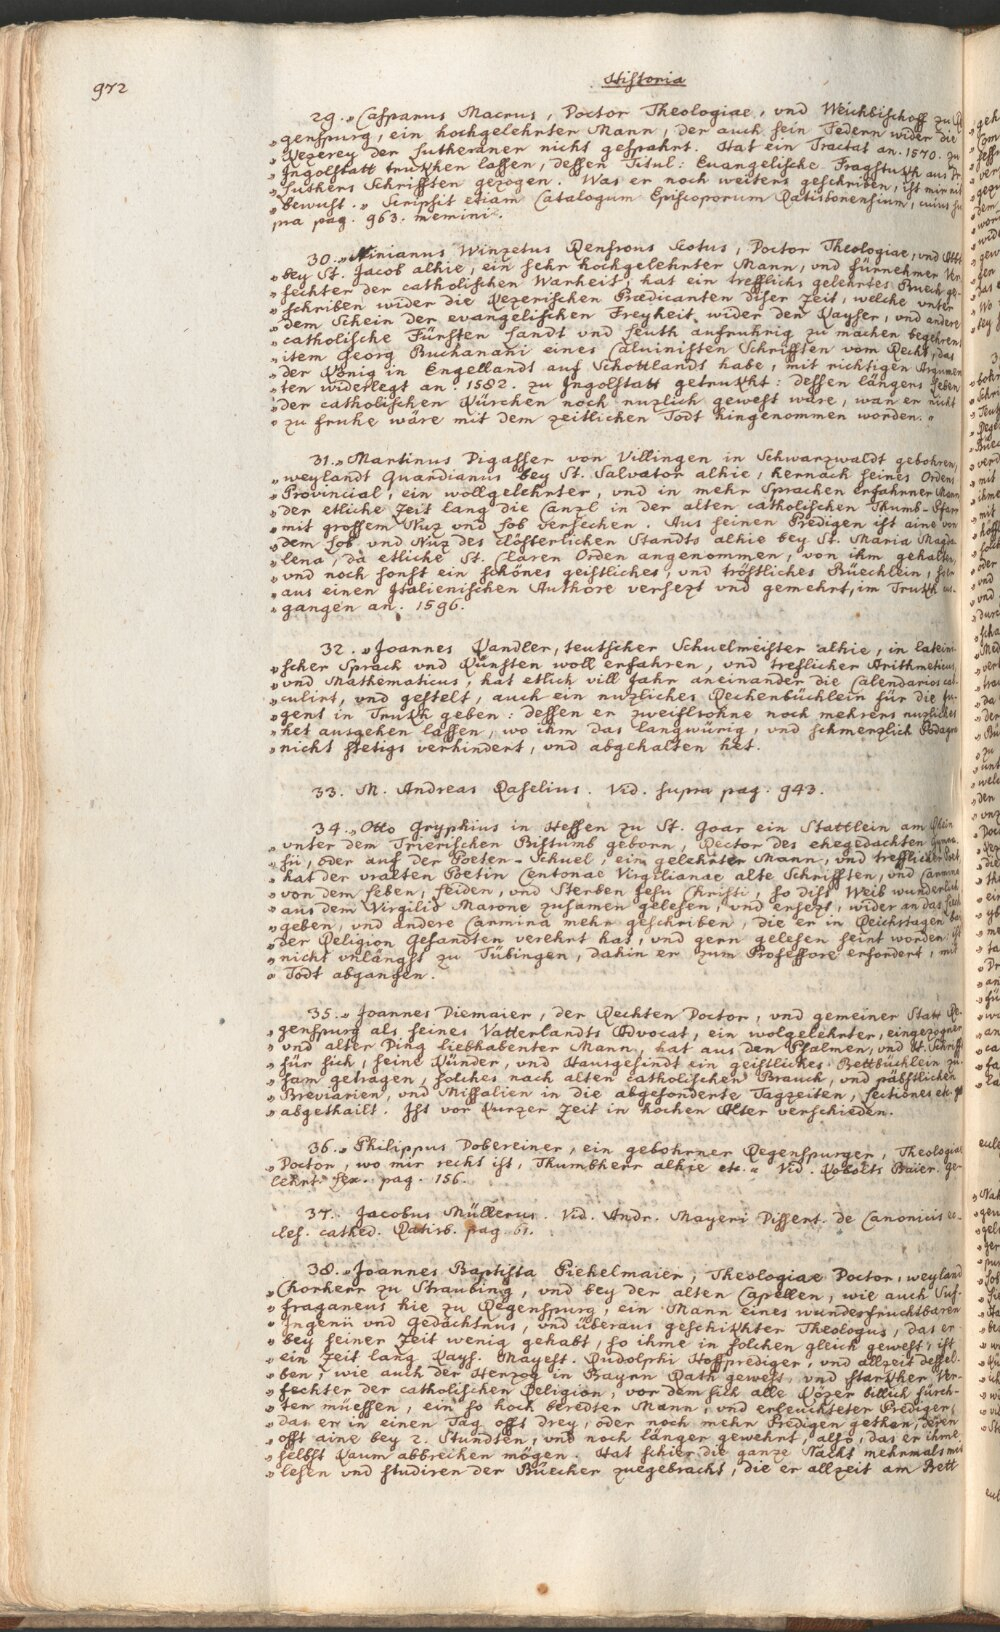 972
Historia
29. „Casparus Macrus, Doctor Theologiae, vnd Weichbischoff zu Re
„genspurg, ein hochgelehrter Mann, der auch sein Federn wider die
„Kezerey der Lutheraner nicht gespahrt. Hat ein Tractat an. 1570. zu
„Ingolstatt trukhen lassen, dessen Titul: Euangelische Fragstukh aus Dr.
„Luthers Schrifften gezogen. Was er noch weiters geschriben, ist mir nit
„bewust. „ Scripsit etiam Catalogum Episcoporum Ratisbonensium, cuius su
pra pag. 963. memini.
30. „Ninianus Winzetus Renfrous Scotus, Doctor Theologiae, vnd Abbt
„bey St. Jacob alhie, ein sehr hochgelehrter Mann, vnd fürnehmer Ver
„fechter der catholischen Warheit, hat ein trefflichs gelehrtes Buech ge-
„schriben wider die Kezerischen Prædicanten diser Zeit, welche vnter
„dem Schein der evangelischen Freyheit wider den Kayser, vnd andere
„catholische Fürsten Landt vnd Leuth aufruhrig zu machen begehren,
„item Georg Buchanani eines Caluinisten Schrifften vom Recht, das
„der König in Engellandt auf Schottlandt habe, mit richtigen Argumen
„ten widerlegt an. 1582. zu Ingolstatt getrukht: dessen längers Leben
„der catholischen Kürchen noch nuzlich gewest wäre, wan er nicht
„zu fruhe wäre mit dem zeitlichen Todt hingenommen worden. „
31. „Martinus Digasser von Villingen in Schwarzwaldt gebohren,
„weylandt Guardianus bey St. Salvator alhie, hernach seines Ordens
„Provincial, ein wollgelehrter, vnd in mehr Sprachen erfahrner Mann
„der etliche Zeit lang die Canzl in der alten catholischen Thumb-Pfarr
„mit grossem Nuz vnd Lob versechen. Aus seinen Predigen ist aine von
„dem Lob vnd Nuz des Clösterlichen Standts alhie bey St. Maria Magda
„lena, da etliche St. Claren Orden angenommen, von ihm gehalten,
„vnd noch sonst ein schönes geistliches, vnd tröstliches Büechlein,
„aus einen Italienischen Authore versezt vnd gemehrt, im Trukh aus-
„gangen an. 1596.
32. „Joannes Kandler, teutscher Schuelmeister alhie, in lateini-
„scher Sprach vnd Künsten woll erfahren, vnd treflicher Arithmeticus,
„vnd Mathematicus, hat etlich vill Jahr aneinander die Calendarios cal-
„culirt, vnd gestelt, auch ein nuzliches Rechenbüchlein für die Ju-
„gent in Trukh geben: dessen er zweiflsohne noch mehrers nuzliches
„het ausgehen lassen, wo ihm das langwürig, vnd schmerzlich Podagra
„nicht stetigs verhindert, vnd abgehalten het.
33. M. Andreas Raselius. Vid. supra pag. 943.
34. „Otto Gryphius in Hessen zu St. Goar ein Stattlein am Rhein
„vnter dem Trierischen Bistumb geborn, Rector des ehegedachten Gymna-
„sii, oder auf der Poeten-Schuel, ein gelehrter Mann, vnd trefflicher Poet,
„hat der vralten Poetin Centonae Virgilianae alte Schrifften, vnd Carmina
„von dem Leben, Leiden, vnd Sterben Jesu Christi, so diss Weib wunderlich
„aus dem Virgilio Marone zusamen gelesen, vnd ersezt, wider an das Liecht
„geben, vnd andere Carmina mehr geschriben, die er in Reichstägen bey
„der Religion Gesandten verehrt hat, vnd gern gelesen seint worden: ist
„nicht vnlängst zu Tübingen, dahin er zum Professore erfordert, mit
„Todt abgangen.
35. „Joannes Diemaier, der Rechten Doctor, vnd gemeiner Statt Re-
„genspurg als seines Vatterlandts Advocat, ein wolgelehrter, eingezogner
„vnd alter Ding liebhabenter Mann, hat aus den Psalmen, vnd H. Schrifft
„für sich, seine Künder, vnd Hausgesindt ein geistliches Bettbüchlein zu-
„sam getragen, solches nach alten catholischen Brauch, vnd päbstlichen
„Breviarien, vnd Missalien in die abgesonderte Tagzeiten, Lectiones etc.
„abgethailt. Ist vor Kurzer Zeit in hochen Alter verschieden.
36. „Philippus Dobereiner, ein gebohrner Regenspurger, Theologiae
„Doctor, wo mir recht ist, Thumbherr alhie etc. „ Vid. Kobolts Baier. Ge-
lehrt. Lex. pag. 156.
37. Jacobus Müllerus. Vid. Andr. Mayeri Dissert. de Canonicis ec-
cles. cathed. Ratisb. pag. 61.
38. „Joannes Baptista Pichelmaier, Theologiae Doctor, weyland
„Chorherr zu Straubing, vnd bey der alten Capellen, wie auch Suf-
„fraganeus hie zu Regenspurg, ein Mann eines wunderfruchtbaren
„Ingenii vnd Gedächtnus, vnd überaus geschikhter Theologus, das er
„bey seiner Zeit wenig gehabt, so ihme in solchen gleich gewest, ist
„ein Zeit lang Kays. Mayest. Rudolphi Hoffprediger, vnd allzeit dessel-
„ben, wie auch der Herzog in Bayrn Rath gewest, vnd starkher Ver-
„fechter der catholischen Religion, vor dem sich alleKözer billich fürch-
„ten müessen, ein so hoch beredter Mann, vnd erleuchteter Prediger,
„das er in einen Tag offt drey, oder noch mehr Predigen gethan, deren
„offt aine bey 2. Stundten, vnd noch länger gewehrt, also, das er ihme
„selbst Kaum abbrechen mögen. Hat schier die ganze Nacht mehrmals mit
„lesen vnd studiren der Büecher zuegebracht, die er allzeit am Bett